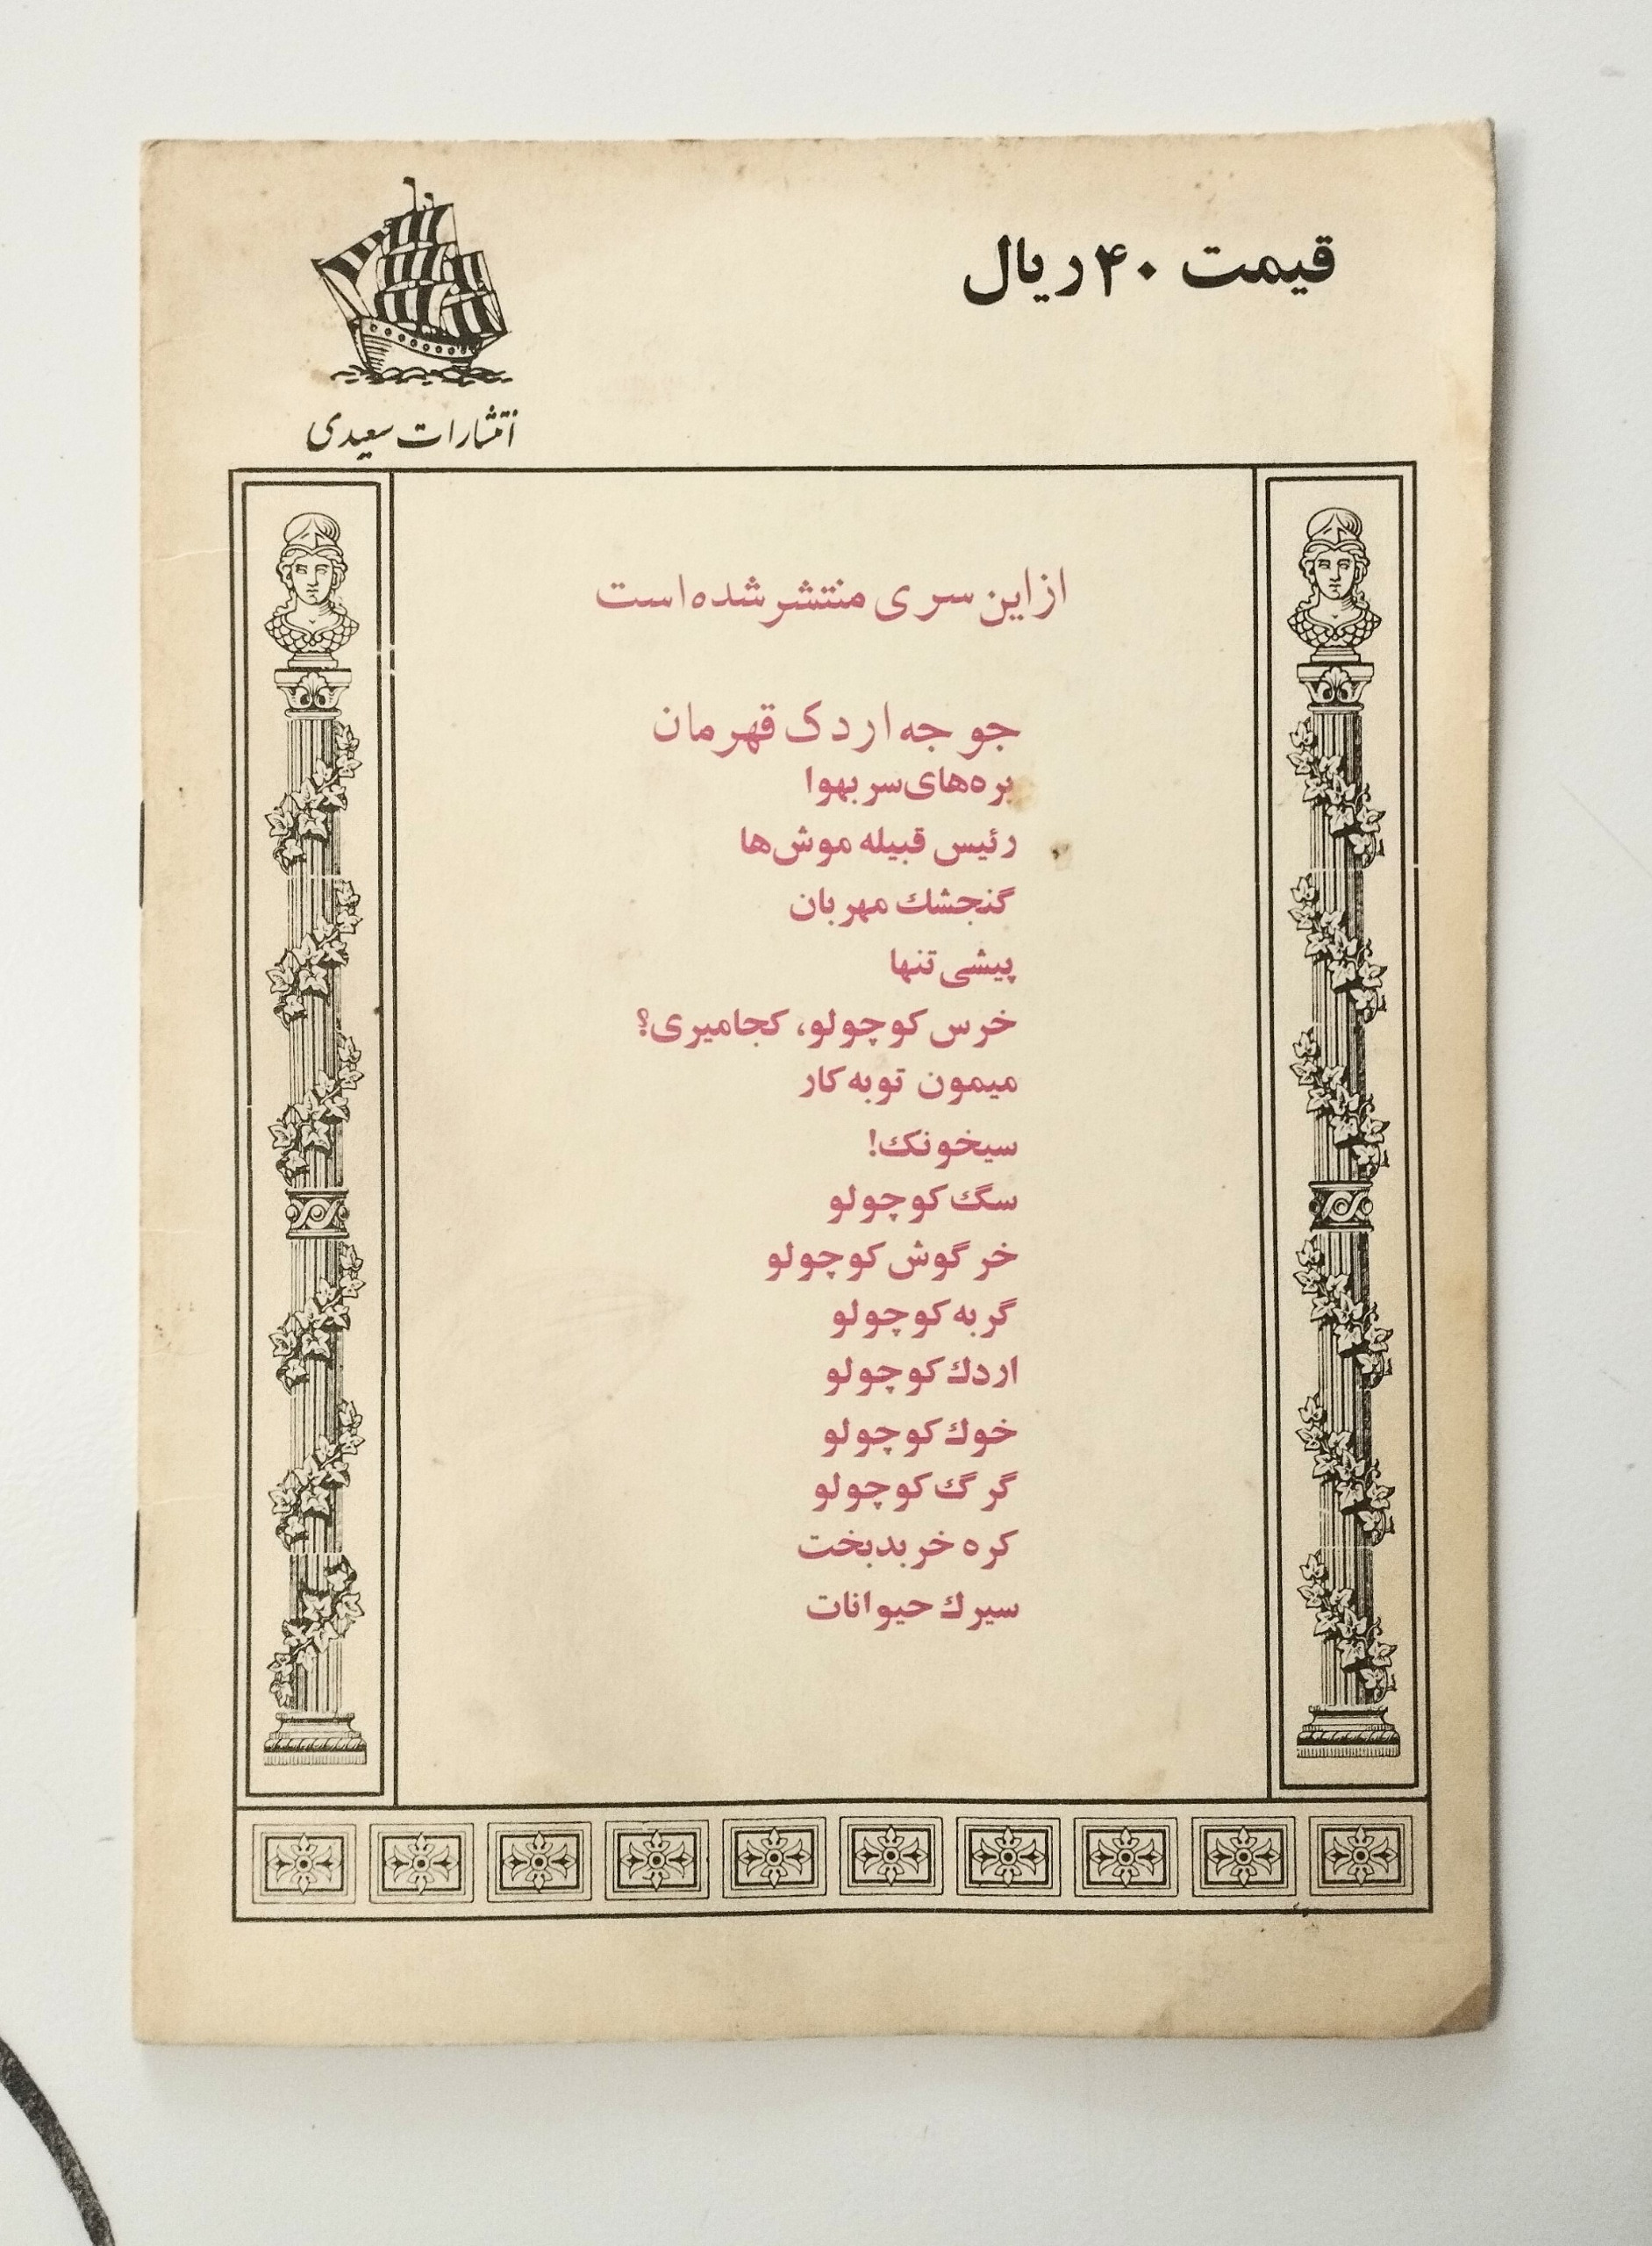 قیمت ۴۰ ریال
انتشارات سعیدی
از این سری منتشر شده است
جوجه اردک قهرمان
بره‌های سر بهوا
رئیس قبیله موش‌ها
گنجشك مهربان
پیشی تنها
خرس کوچولو، کجا میری؟
میمون توبه کار
سیخونك!
سگ کوچولو
خرگوش کوچولو
گربه کوچولو
اردك کوچولو
خوك کوچولو
گرگ کوچولو
کره خر بدبخت
سیرك حیوانات